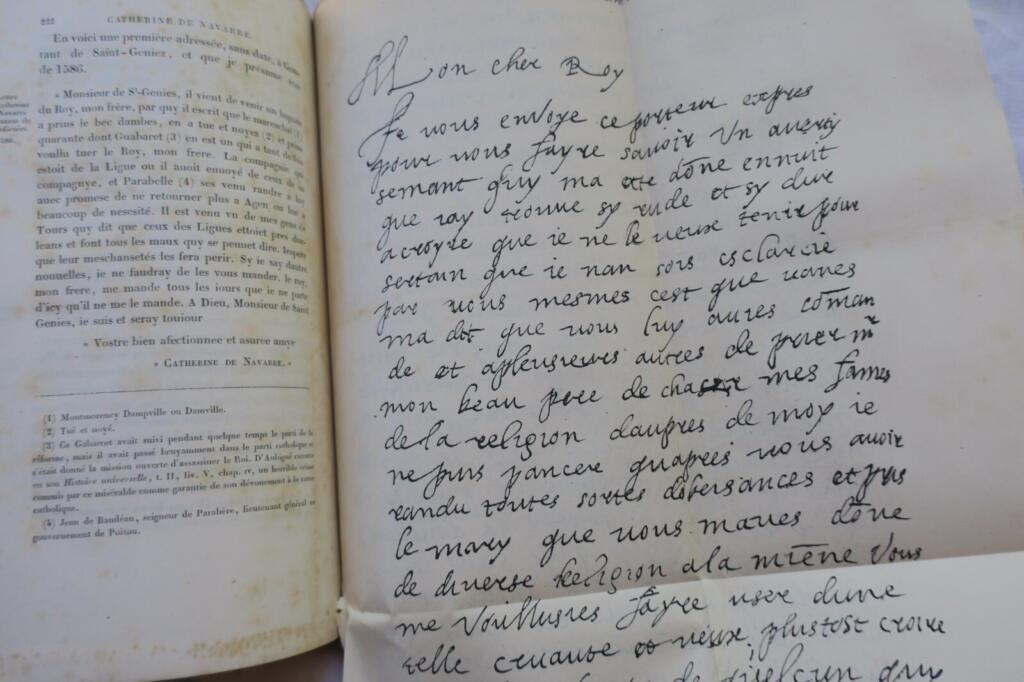 222
CATHERINE DE NAVARRE.
En voici une première adressée, sans date, à
tant de Saint-Geniez, et que je présume
de 1586.
« Monsieur de St-Genies, il vient de venir un
du Roy, mon frère, par quy il escrit que le mareschal (1)
a prins le bec dambes, en a tue et noyes (2) et
quarante dont Guabaret (3) en est un qui a tant de
voullu tuer le Roy, mon frere. La compagnie
estoit de la Ligue ou il auoit enuoyé de ceux de
compagnye, et Parabelle (4) ses venu randre a
auec promese de ne retourner plus a Agen ou
beaucoup de nesesité. Il est venu vn de mes gens de
Tours quy dit que ceux des Ligues ettoiet pres
leans et font tous les maux quy se peuuet dire.
que leur meschansetés les fera perir. Sy ie say dautres
nouuelles, ie ne faudray de les vous mander. le roy,
mon frere, me mande tous les iours que ie ne parte
d'icy qu'il ne me le mande. A Dieu, Monsieur de Saint
Genies, ie suis et seray touiour
« Vostre bien afectionnee et asuree amye
« CATHERINE DE NAVARRE. »
(1) Montmorency Dampville ou Damville.
(2) Tué et noyé.
(3) Ce Gabarret avait suivi pendant quelque temps le parti de la
réforme, mais il avait passé bruyamment dans le parti catholique et
s'était donné la mission ouverte d'assassiner le Roi. D'Aubigné raconte
en son Histoire universelle, t. II, liv. V, chap. IV, un horrible crime
commis par ce misérable comme garantie de son dévouement à la cause
catholique.
(5) Jean de Baudéan, seigneur de Parabère, lieutenant général au
gouvernement de Poitou.
Mon cher Roy
Je vous envoye ce porteur expres
pour vous fayre savoir un averty
semant quy ma ete dōne ennuit
que iay trouue sy rude et sy dur
a croyre que ie ne le veux tenir pour
sertain que ie nan sois esclarcie
par vous mesmes cest que
ma dit que vous luy aures cōman
de et aplusieurs autres de prier mr
mon beau pere de chasser mes fames
de la religion daupres de moy ie
ne puis pancer quapres vous avoir
randu toutes sortes dobeisances et pris
le mary que vous maues dōne
de diverse Religion a la miēne Vous
me Voulusies fayre user dune
telle cruaute et veux plustost croire
de quelcun quy